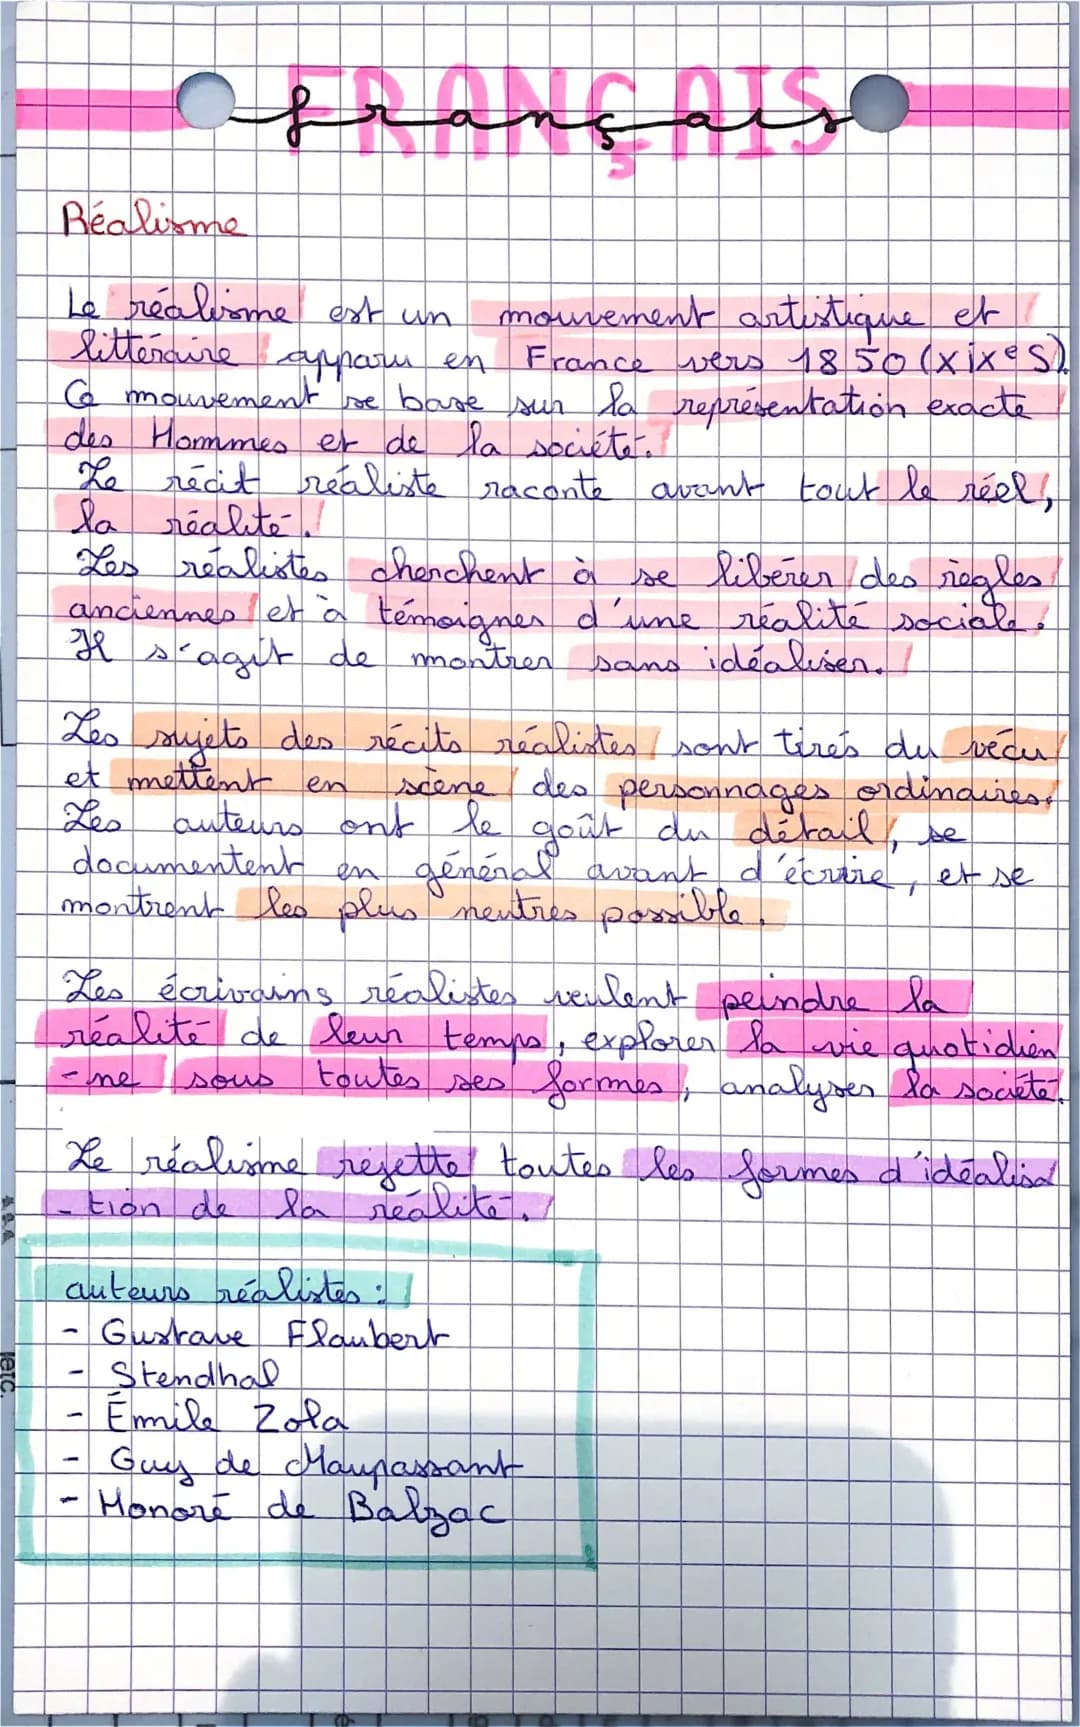 FRANÇAIS
français
Réalisme
Le réalisme est un mouvement artistique et
littéraire apparu en France vers 1850 (XIXe S).
Ce mouvement se base sur la représentation exacte
des Hommes et de la société.
Le récit réaliste raconte avant tout le réel,
la réalité.
Les réalistes cherchent à se libérer des règles
anciennes et à témoigner d'une réalité sociale.
Il s'agit de montrer sans idéaliser.
Les sujets des récits réalistes sont tirés du vécu
et mettent en scène des personnages ordinaires.
Les auteurs ont le goût du détail, se
documentent en général avant d'écrire, et se
montrent les plus neutres possible.
Les écrivains réalistes veulent peindre la
réalité de leur temps, explorer la vie quotidien
-ne sous toutes ses formes, analyser la société.
Le réalisme rejette toutes les formes d'idéalisa
-tion de la réalité.
auteurs réalistes :
- Gustave Flaubert
- Stendhal
- Émile Zola
- Guy de Maupassant
- Honoré de Balzac